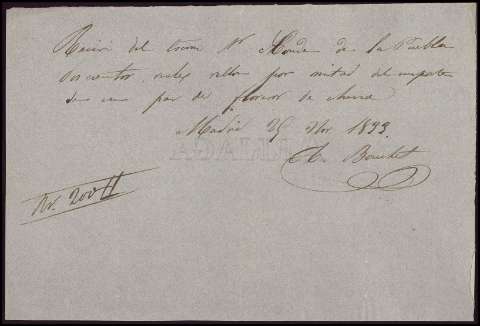 Recivi del Excmo Sr Conde de la Puebla
Doscientos reales vellon por mitad del importe
de un par de floreros de china
Madrid 25 Nov 1833.
Bouchet
Rv. 200